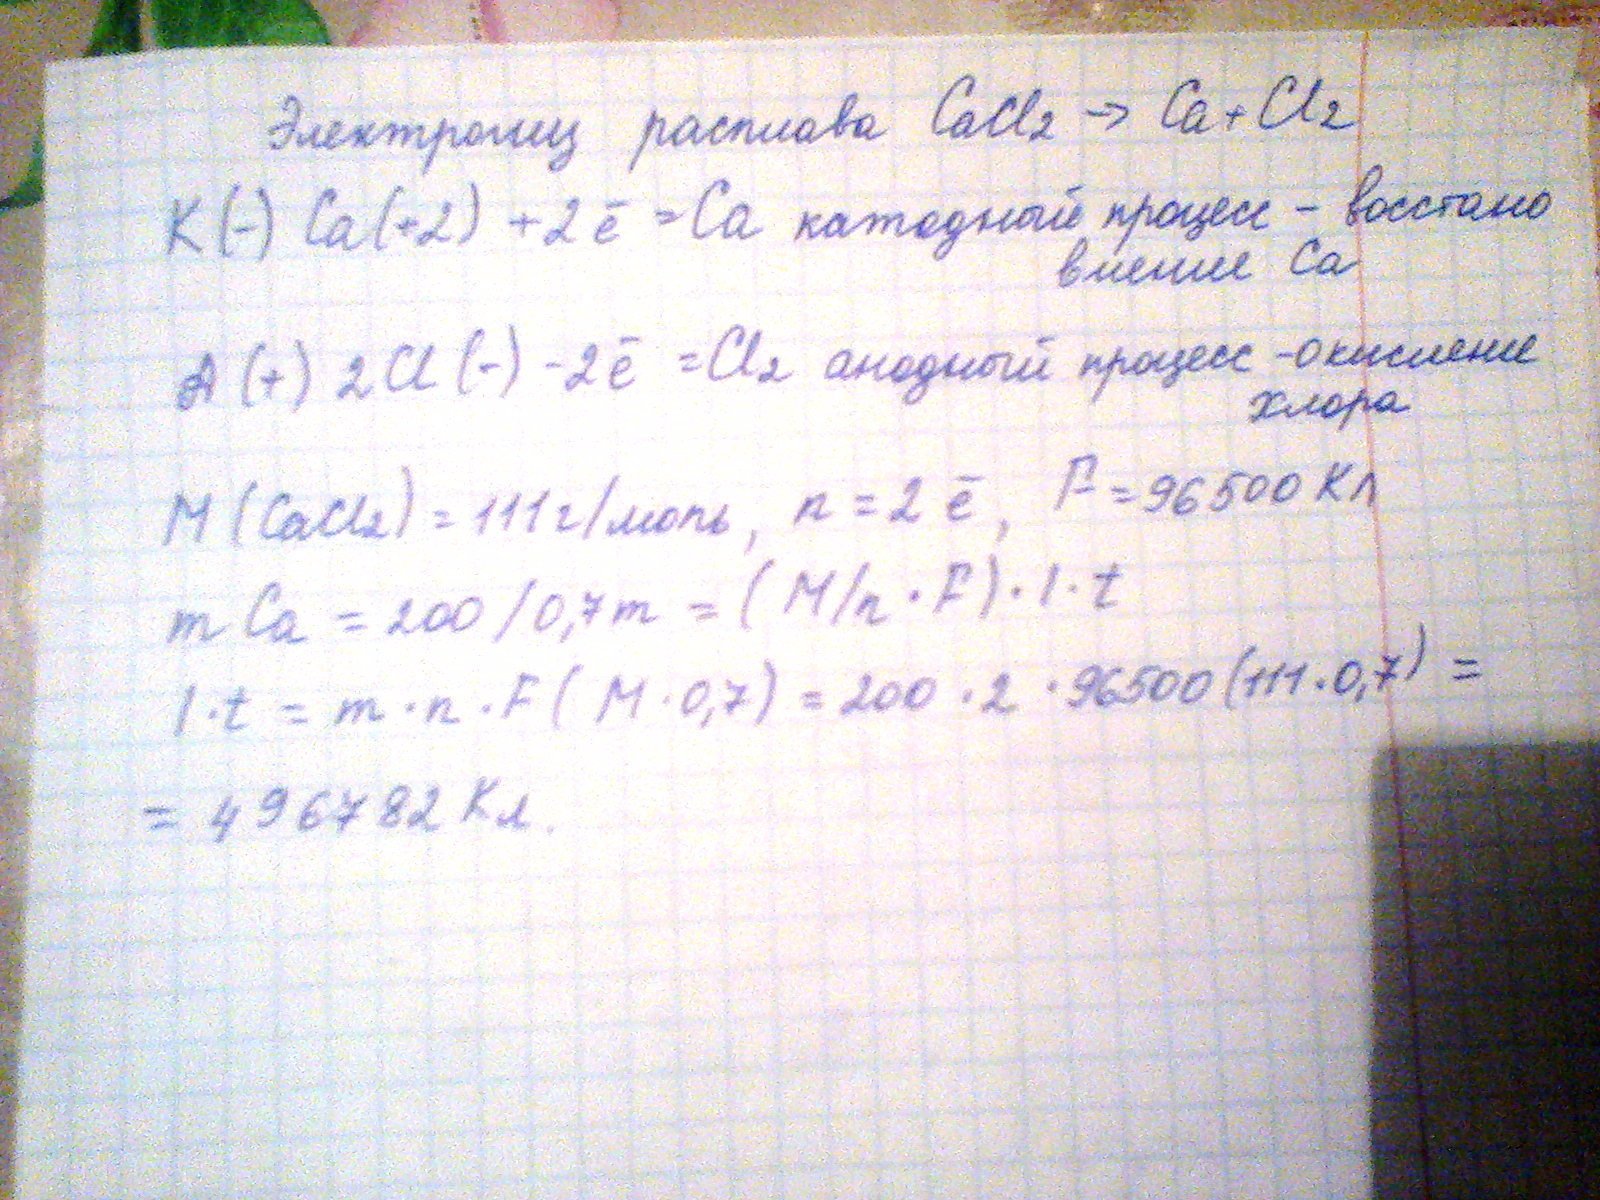 Электролиз расплава CaCl2 → Ca + Cl2
К(-) Ca(+2) + 2ē = Ca катодный процесс - восстано
вление Ca
А(+) 2Cl(-) - 2ē = Cl2 анодный процесс - окисление
хлора
M(CaCl2) = 111 г/моль, n = 2ē, F = 96500 Кл
m Ca = 200/0,7m = (M/n · F) · I · t
I · t = m · n · F (M · 0,7) = 200 · 2 · 96500 (111 · 0,7) =
= 496782 Кл.